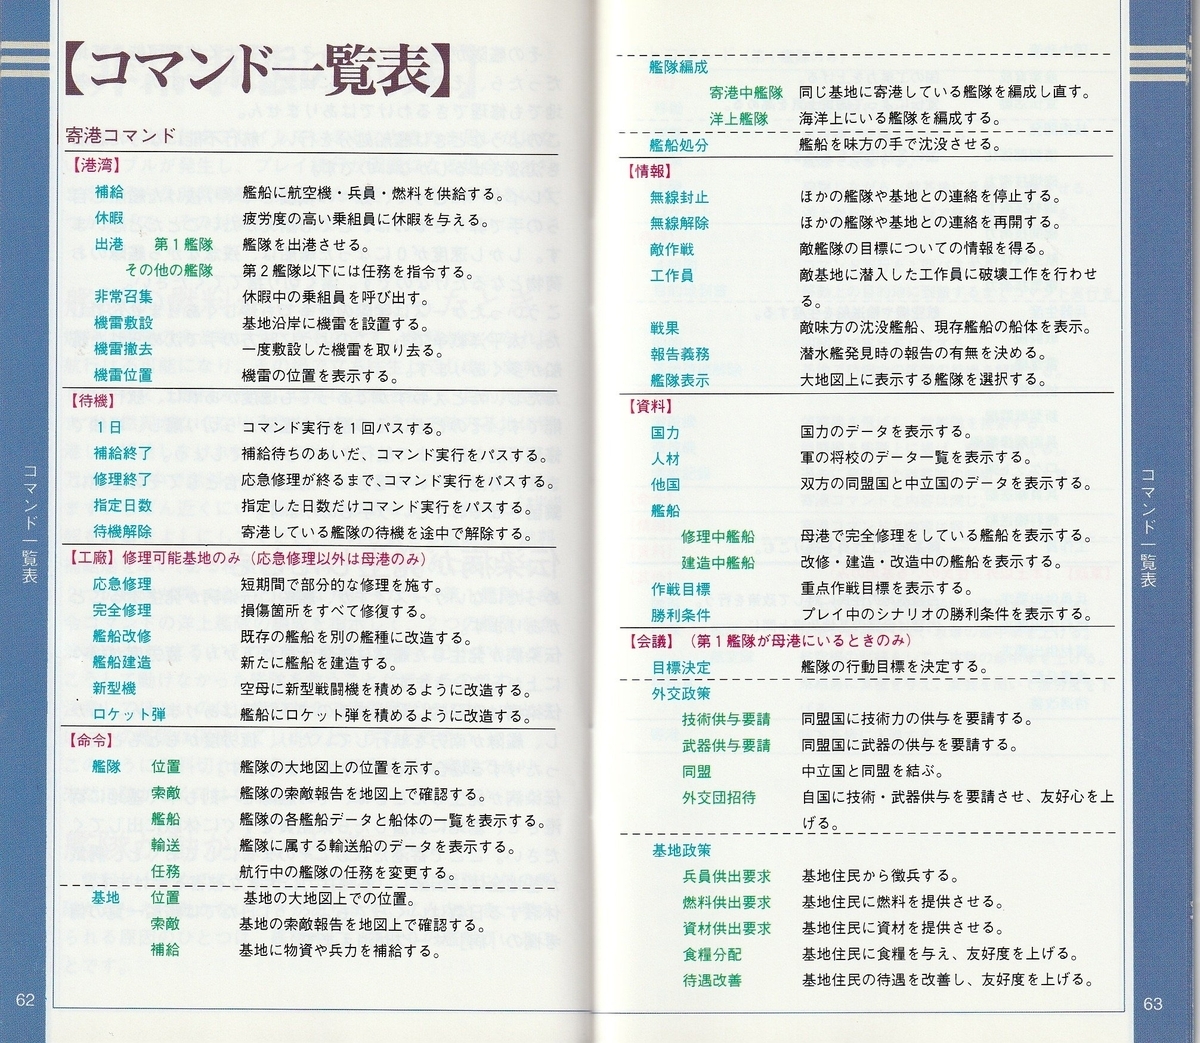 【コマンド一覧表】
寄港コマンド
【港湾】
補給 艦船に航空機・兵員・燃料を供給する。
休暇 疲労度の高い乗組員に休暇を与える。
出港 第1艦隊 艦隊を出港させる。
その他の艦隊 第2艦隊以下には任務を指令する。
非常召集 休暇中の乗組員を呼び出す。
機雷敷設 基地沿岸に機雷を設置する。
機雷撤去 一度敷設した機雷を取り去る。
機雷位置 機雷の位置を表示する。
【待機】
1日 コマンド実行を1回パスする。
補給終了 補給待ちのあいだ、コマンド実行をパスする。
修理終了 応急修理が終るまで、コマンド実行をパスする。
指定日数 指定した日数だけコマンド実行をパスする。
待機解除 寄港している艦隊の待機を途中で解除する。
【工廠】修理可能基地のみ（応急修理以外は母港のみ）
応急修理 短期間で部分的な修理を施す。
完全修理 損傷箇所をすべて修復する。
艦船改修 既存の艦船を別の艦種に改造する。
艦船建造 新たに艦船を建造する。
新型機 空母に新型戦闘機を積めるように改造する。
ロケット弾 艦船にロケット弾を積めるように改造する。
【命令】
艦隊 位置 艦隊の大地図上の位置を示す。
索敵 艦隊の索敵報告を地図上で確認する。
艦船 艦隊の各艦船データと船体の一覧を表示する。
輸送 艦隊に属する輸送船のデータを表示する。
任務 航行中の艦隊の任務を変更する。
基地 位置 基地の大地図上での位置。
索敵 基地の索敵報告を地図上で確認する。
補給 基地に物資や兵力を補給する。
コマンド一覧表
62
艦隊編成
寄港中艦隊 同じ基地に寄港している艦隊を編成し直す。
洋上艦隊 海洋上にいる艦隊を編成する。
艦船処分 艦船を味方の手で沈没させる。
【情報】
無線封止 ほかの艦隊や基地との連絡を停止する。
無線解除 ほかの艦隊や基地との連絡を再開する。
敵作戦 敵艦隊の目標についての情報を得る。
工作員 敵基地に潜入した工作員に破壊工作を行わせ
る。
戦果 敵味方の沈没艦船、現存艦船の船体を表示。
報告義務 潜水艦発見時の報告の有無を決める。
艦隊表示 大地図上に表示する艦隊を選択する。
【資料】
国力 国力のデータを表示する。
人材 軍の将校のデータ一覧を表示する。
他国 双方の同盟国と中立国のデータを表示する。
艦船
修理中艦船 母港で完全修理をしている艦船を表示する。
建造中艦船 改修・建造・改造中の艦船を表示する。
作戦目標 重点作戦目標を表示する。
勝利条件 プレイ中のシナリオの勝利条件を表示する。
【会議】（第1艦隊が母港にいるときのみ）
目標決定 艦隊の行動目標を決定する。
外交政策
技術供与要請 同盟国に技術力の供与を要請する。
武器供与要請 同盟国に武器の供与を要請する。
同盟 中立国と同盟を結ぶ。
外交団招待 自国に技術・武器供与を要請させ、友好心を上
げる。
基地政策
兵員供出要求 基地住民から徴兵する。
燃料供出要求 基地住民に燃料を提供させる。
資材供出要求 基地住民に資材を提供させる。
食糧分配 基地住民に食糧を与え、友好度を上げる。
待遇改善 基地住民の待遇を改善し、友好度を上げる。
コマンド一覧表
63